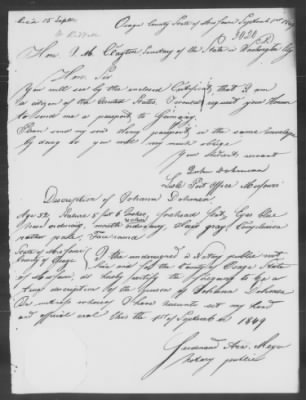 Rec'd 15 Sept
Osage County State of Missouri September 1st 1849
3020
Hon. J. M. Clayton Secretary of the State in Washington City
Hon. Sir
You will see by the enclosed Certificate that I am
a citizen of the United States. I would request your Honor
to send me a passport to Germany.
Please send my said passport in the same envelope
by doing so you will much oblige
Your obedient servant
John
Post Office Missouri
Description of Johann
Age 32, Stature 5 feet 6 inches, forehead flat, Eyes blue
Nose ordinary, mouth ordinary, Hair gray, Complexion
rather pale, Face round
State of Missouri
County of Osage
I the undersigned a Notary public
for the County of Osage State
of Missouri, do hereby certify the foregoing to be a
true description of the person of Johann
In witness whereof I have hereunto set my hand
and official seal this the 1st of September 1849
Ferdinand
Notary public